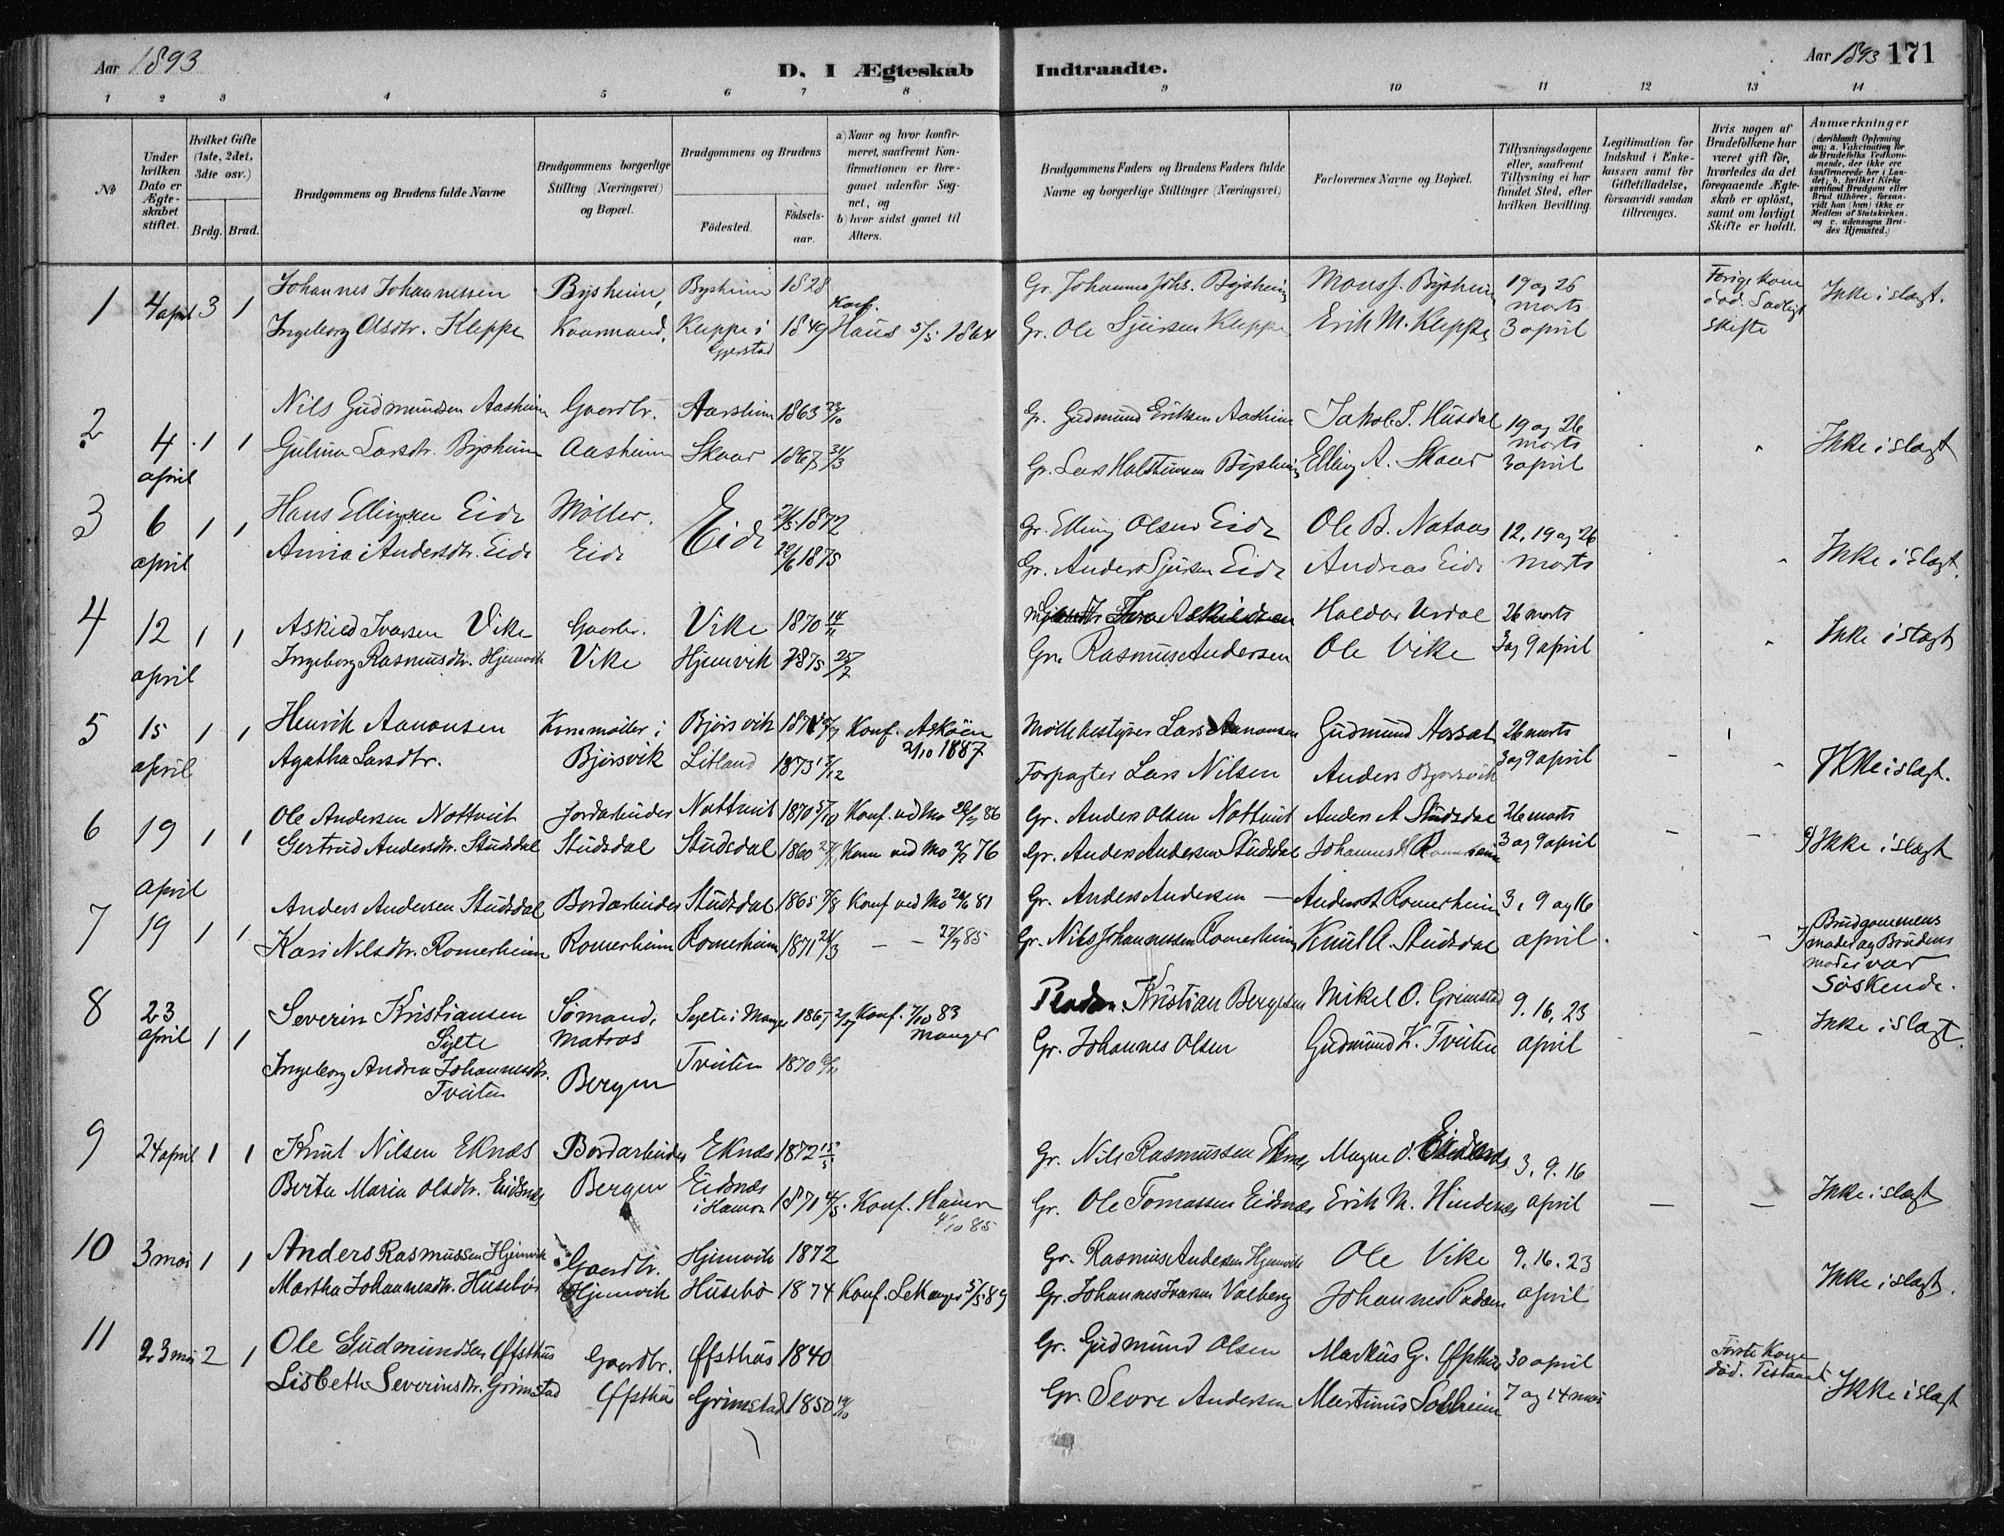 Aar 1893
D. I Ægteskab Indtraadte.
Aar 1893 171
1 2 3 4 5 6 7 8 9 10 11 12 13 14
№
Under hvilken Dato er Ægteskabet stiftet.
Hvilket Gifte (1ste, 2det, 3die osv.)
Brdg. Brud.
Brudgommens og Brudens fulde Navne
Brudgommens borgerlige Stilling (Næringsvei) og Bopæl.
Brudgommens og Brudens
Födested. Födsels-aar.
a) Naar og hvor konfirmeret, saafremt Konfirmationen er foregaaet udenfor Sognet, og
b) hvor sidst gaaet til Alters.
Brudgommens Faders og Brudens Faders fulde Navne og borgerlige Stillinger (Næringsvei)
Forlovernes Navne og Bopæl.
Tillysningsdagene eller, saafremt Tillysning ei har fundet Sted, efter hvilken Bevilling.
Legitimation for Indskud i Enkekassen samt for Giftetilladelse, forsaavidt saadan tiltrænges.
Hvis nogen af Brudefolkene har været gift för, hvorledes da det foregaaende Ægteskab er oplöst, samt om lovligt Skifte er holdt.
Anmærkninger (deriblandt Oplysning om: a. Vakcination for de Brudefolks Vedkommende, der ikke ere konfirmerede her i Landet; b. hvilket Kirkesamfund Brudgom eller Brud tilhörer, forsaavidt han (hun) ikke er Medlem af Statskirken. og c. udensogns Brudes Hjemsted.)
1 4 april 3 1 Johannes Johannessen Bysheim, Bysheim 1828 Gr. Johannes Johs. Bysheim Mons J. Bysheim 19 og 26 marts Forige kone död. Lovligt skifte Ikke i slægt.
Ingeborg Olsdtr. Kleppe Kaarmand. Kleppe i Gjerstad 1849 Konf. Haus 5/5 1864 Gr. Ole Sjursen Kleppe Erik M. Kleppe 3 april
2 4 april 1 1 Nils Gudmundsen Aasheim Gaardbr. Aarsheim 1863 Gr. Gudmund Eriksen Aasheim Jakob T. Husdal 19 og 26 marts Ikke i slægt
Gulina Larsdtr. Bysheim Aasheim Skaar 1867 Gr. Lars Halsteinsen Bysheim Elling A. Skaar 3 april
3 6 april 1 1 Hans Ellingsen Eide Møller. Eide 1872 Gr. Elling Olsen Eide Ole B. Nataas 12, 19 og 26 Ikke i slægt.
Anna Andersdtr. Eide Eide 1875 Gr. Anders Sjursen Eide Andreas Eide marts
4 12 april 1 1 Askild Ivarsen Vike Gaardbr. Vike 1870 Haldor Urdal 26 marts Ikke i slægt
Ingeborg Rasmusdtr. Hjemvik Vike Hjemvik 1875 Gr. Rasmus Andersen Ole Vike 3 og 9 april
5 15 april 1 1 Henrik Aanonsen Kornmøller i Bjørsvik Konf. Askøen 2/10 1887 Møllebestyrer Lars Aanonsen Gudmund 26 marts Ikke i slægt.
Agatha Larsdtr. Bjørsvik Litland 1873 Forpagter Lars Nilsen Anders Bjørsvik 3 og 9 april
6 19 april 1 1 Ole Andersen Nottveit Jordarbeider Nottveit 1870 Konf. ved Mo 86 Gr. Anders Olsen Nottveit Anders A Studsdal 26 marts Ikke i slægt
Gertrud Andersdtr. Studsdal Studsdal Studsdal 1860 Konf ved Mo 76 Gr. Anders Andersen Studsdal Johannes 3 og 9 april
7 19 1 1 Anders Andersen Studsdal Bordarbeider Studsdal 1865 Konf ved Mo 81 Gr. Anders Andersen — Anders Romerheim 3, 9 og 16 Brudgommens moder og Brudens moder var Søskende.
Kari Nilsdtr. Romerheim Romerheim Romerheim 1871 — — 85 Gr. Nils Johannessen Romerheim Knut A. Studsdal april
8 23 april 1 1 Severin Kristiansen Sylte Sømand, matros Sylte i Manger 1867 Konf. 7/10 83 Manger Kristian Bergesen Mikel O. Grimstad 9. 16. 23 Ikke i slægt
Ingeborg Andrea Johannesdtr. Tveiten Bergen Tveiten 1870 Gr. Johannes Olsen Gudmund K. Tveiten april
9 24 april 1 1 Knut Nilsen Eknæs Bordarbeider Eknæs 1872 Gr. Nils Rasmussen Magne O. 3. 9. 16 Ikke i slægt
Berta Maria Olsdtr. Eidsnes Bergen Eidsnæs i Hamre 1870 Konf. Hamre 4/10 85 Gr. Ole Tomassen Eidsnæs Erik M. Hindenæs april
10 3 mai 1 1 Anders Rasmussen Hjemvik Gaardbr. Hjemvik 1872 Gr. Rasmus Andersen Hjemvik Ole Vike 9. 16. 23 Ikke i slægt.
Martha Johannesdtr. Husebø Hjemvik Husebø 1874 Konf. 89 Gr. Johannes Ivarsen Valberg Johannes april
11 23 mai 2 1 Ole Gudmundsen Øfsthus Gaardbr. Øfsthus 1840 Gr. Gudmund Olsen Markus G. Øfsthus 30 april Første Kone død. Ikke i slægt
Lisbeth Severinsdtr. Grimstad Øfsthus Grimstad 1850 Gr. Sevre Andersen Martinus Solheim 7 og 14 mai